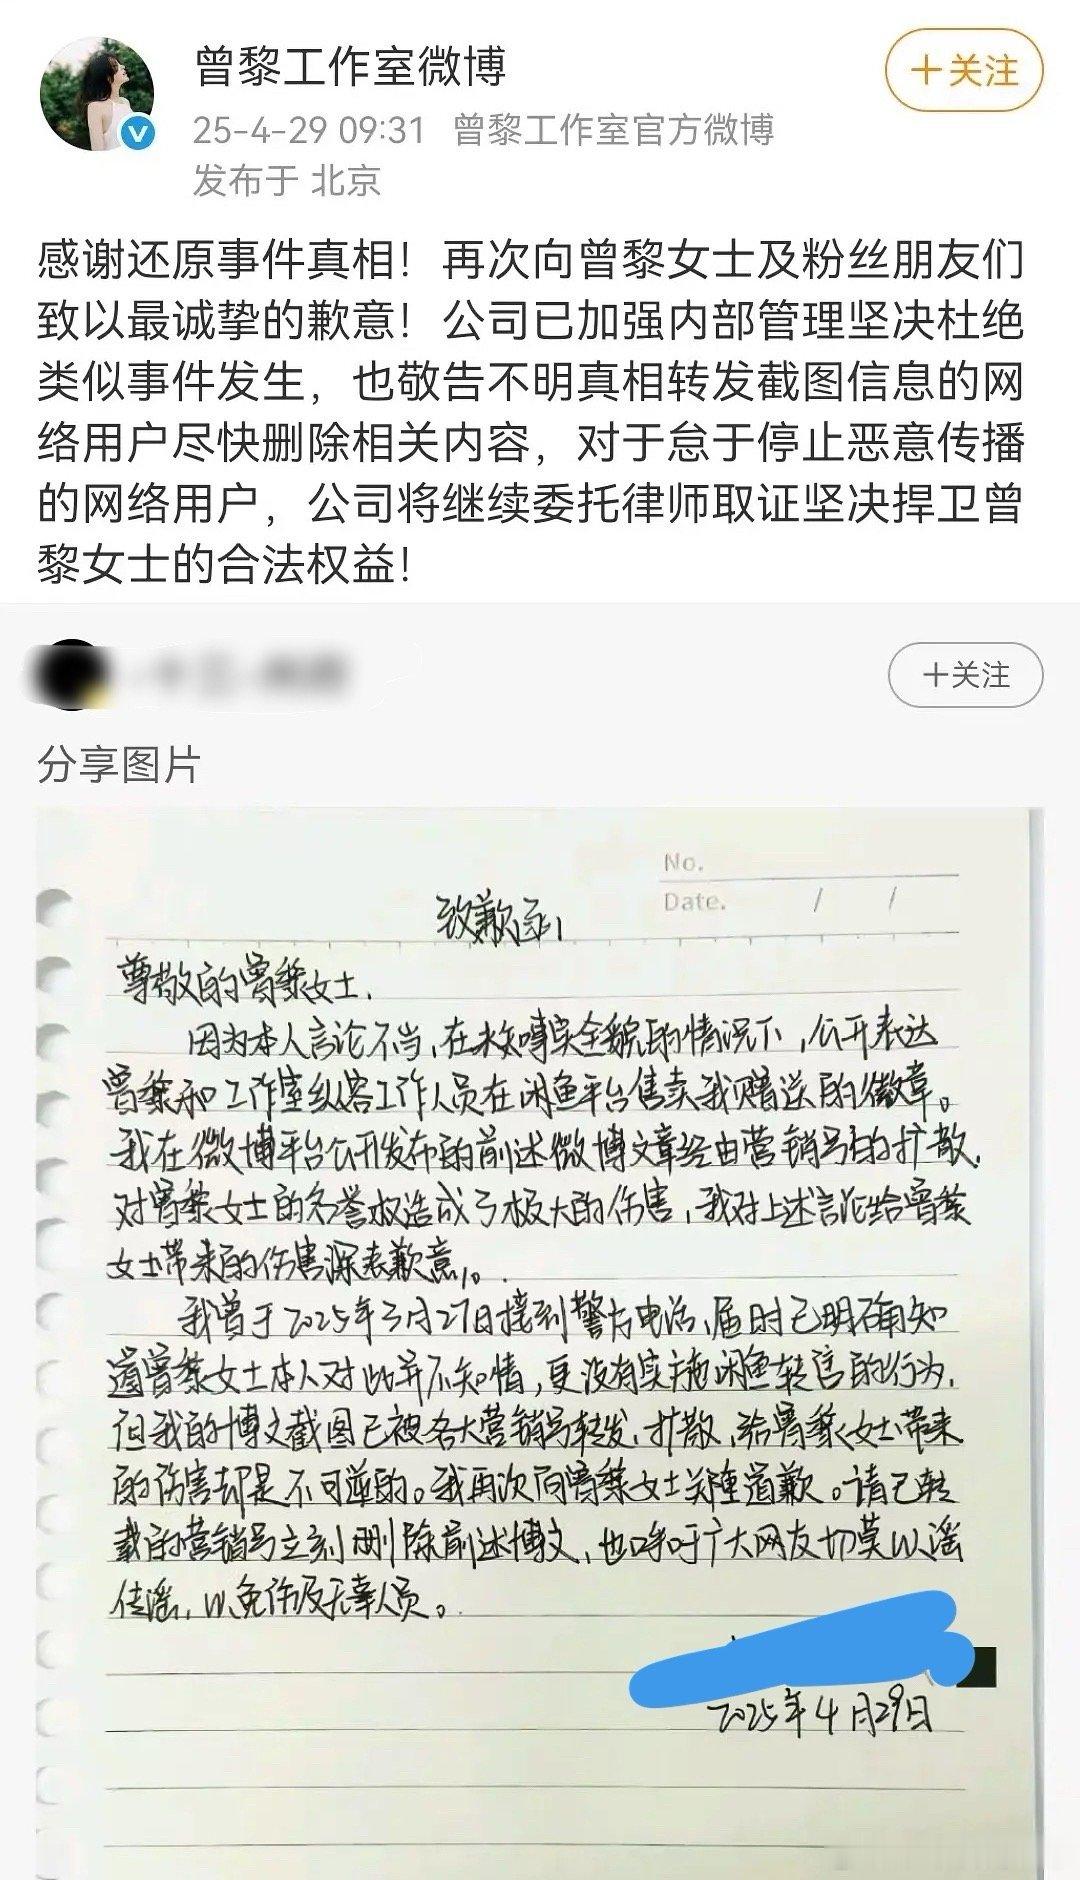 曾黎工作室微博
十关注
25-4-29 09:31 曾黎工作室官方微博
发布于 北京
感谢还原事件真相！再次向曾黎女士及粉丝朋友们
致以最诚挚的歉意！公司已加强内部管理坚决杜绝
类似事件发生，也敬告不明真相转发截图信息的网
络用户尽快删除相关内容，对于怠于停止恶意传播
的网络用户，公司将继续委托律师取证坚决捍卫曾
黎女士的合法权益！
十关注
分享图片
No.
Date. / /
致歉函
尊敬的曾黎女士，
因为本人言论不当，在未知事实全貌的情况下，公开表达
曾黎和工作室纵容工作人员在闲鱼平台售卖我赠送的徽章。
我在微博平台公开发布的前述微博文章经由营销号的扩散，
对曾黎女士的名誉权造成了极大的伤害，我对上述言论给曾黎
女士带来的伤害深表歉意。
我曾于2025年3月27日接到警方电话，届时已明确知
道曾黎女士本人对此并不知情，更没有实施闲鱼转售的行为，
但我的博文截图已被各大营销号转发，扩散，给曾黎女士带来
的伤害却是不可逆的。我再次向曾黎女士郑重道歉。请已转
载的营销号立刻删除前述博文，也呼吁广大网友切莫以谣
传谣，以免伤及无辜人员。
2025年4月29日